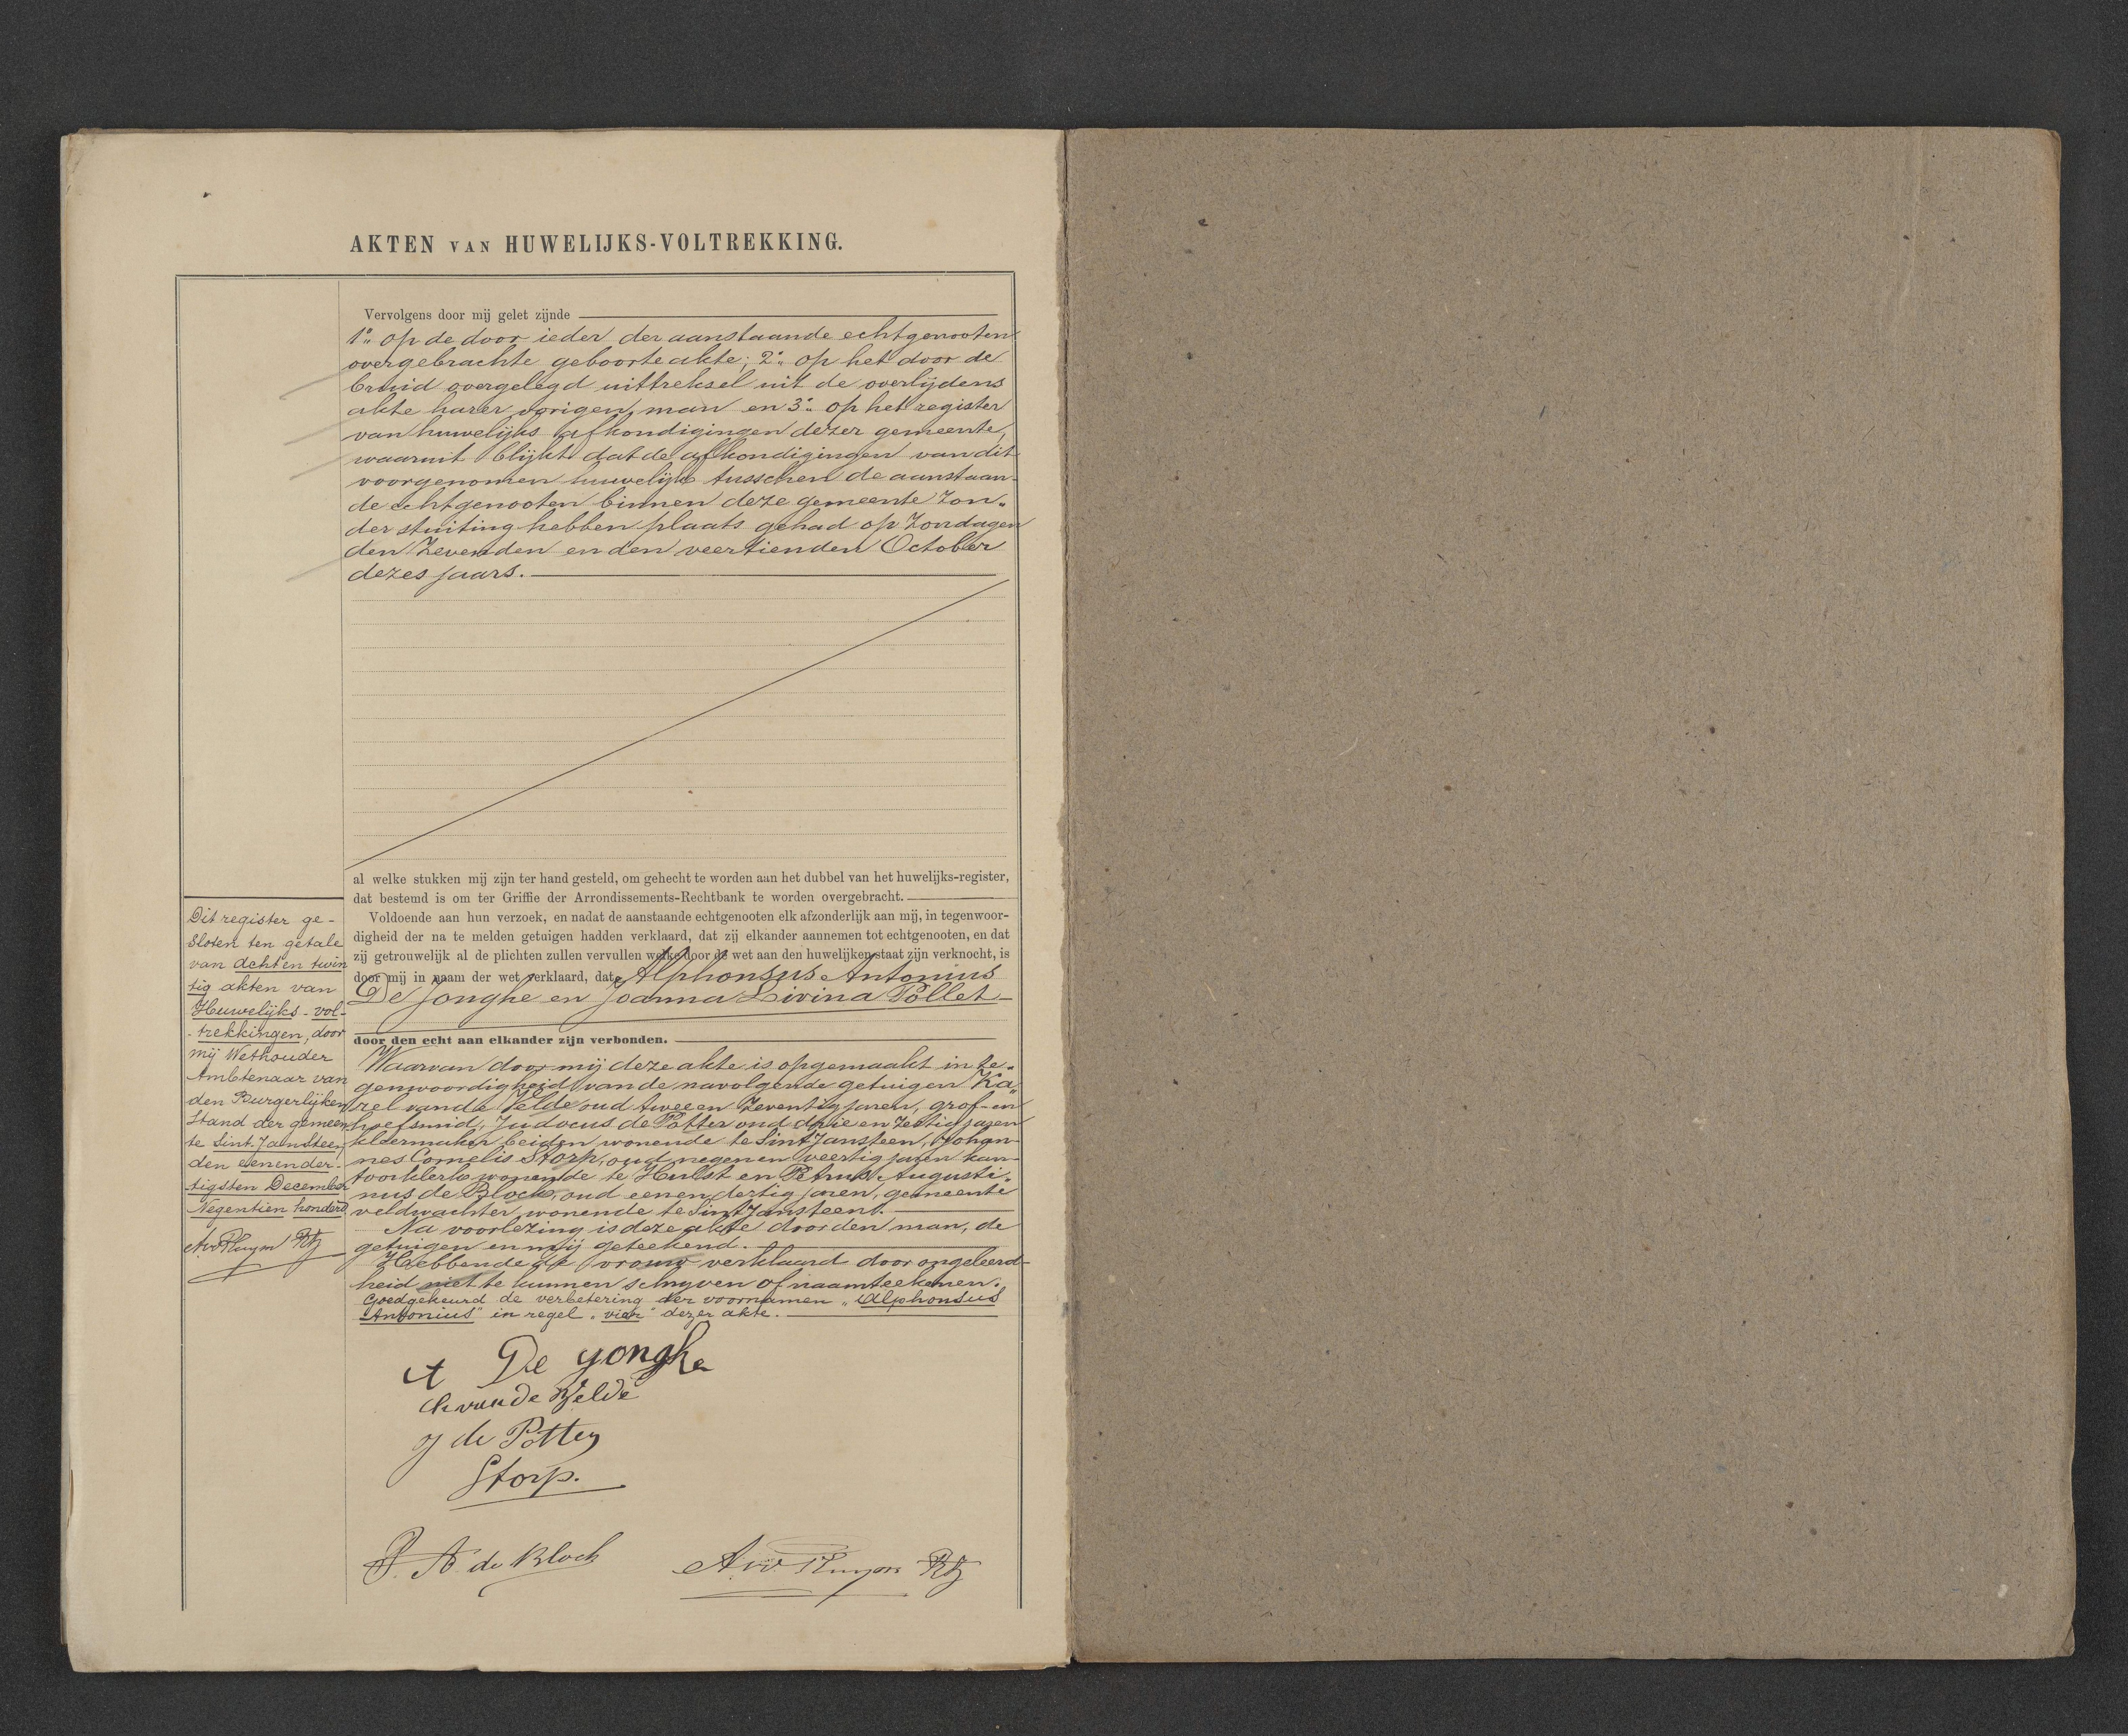 AKTEN VAN HUWELIJKS-VOLTREKKING.
Vervolgens door mij gelet zijnde
1o. op de door ieder der aanstaande echtgenooten
overgebrachte geboorteakte; 2o. op het door de
bruid overgelegd uittreksel uit de overlijdens
akte harer vorigen man en 3o. op het register
van huwelijks afkondigingen dezer gemeente,
waaruit blijkt dat de afkondigingen van dit
voorgenomen huwelijk tusschen de aanstaan-
de echtgenooten binnen deze gemeente zon-
der stuiting hebben plaats gehad op Zondagen
den Zevenden en den veertienden October
dezes jaars.
al welke stukken mij zijn ter hand gesteld, om gehecht te worden aan het dubbel van het huwelijks-register,
dat bestemd is om ter Griffie der Arrondissements-Rechtbank te worden overgebracht.
Voldoende aan hun verzoek, en nadat de aanstaande echtgenooten elk afzonderlijk aan mij, in tegenwoor-
digheid der na te melden getuigen hadden verklaard, dat zij elkander aannemen tot echtgenooten, en dat
zij getrouwelijk al de plichten zullen vervullen welke door de wet aan den huwelijken staat zijn verknocht, is
door mij in naam der wet verklaard, dat Alphonsus Antonius
De Jonghe en Joanna Livina Pollet
door den echt aan elkander zijn verbonden.
Waarvan door mij deze akte is opgemaakt in te-
genwoordigheid van de navolgende getuigen Ka-
rel van de Velde oud twee en Zeventig jaren, grof- en
hoefsmid, Judocus de Potter oud drie en Zestig jaren
kleermaker beiden wonende te Sint Jansteen, Johan-
nes Cornelis Storp, oud negen en veertig jaren kan-
toorklerk wonende te Hulst en Petrus Augusti-
nus de Block, oud een en dertig jaren, gemeente
veldwachter wonende te Sint Jansteen.
Na voorlezing is deze akte door den man, de
getuigen en mij geteekend.
Hebbende de vrouw verklaard door ongeleerd-
heid niet te kunnen schrijven of naamteekenen.
Goedgekeurd de verbetering der voornamen „Alphonsus
Antonius" in regel „vier" dezer akte.
A De Jonghe
k vande Velde
J de Potter
Storp.
P. A. de Block
A.v. Pluym
Dit register ge-
sloten ten getale
van acht en twin
tig akten van
Huwelijks-vol-
trekkingen, door
mij Wethouder
Ambtenaar van
den Burgerlijken
Stand der gemeen
te Sint Jansteen,
den eenen der-
tigsten December
Negentien honderd
A.v. Pluym